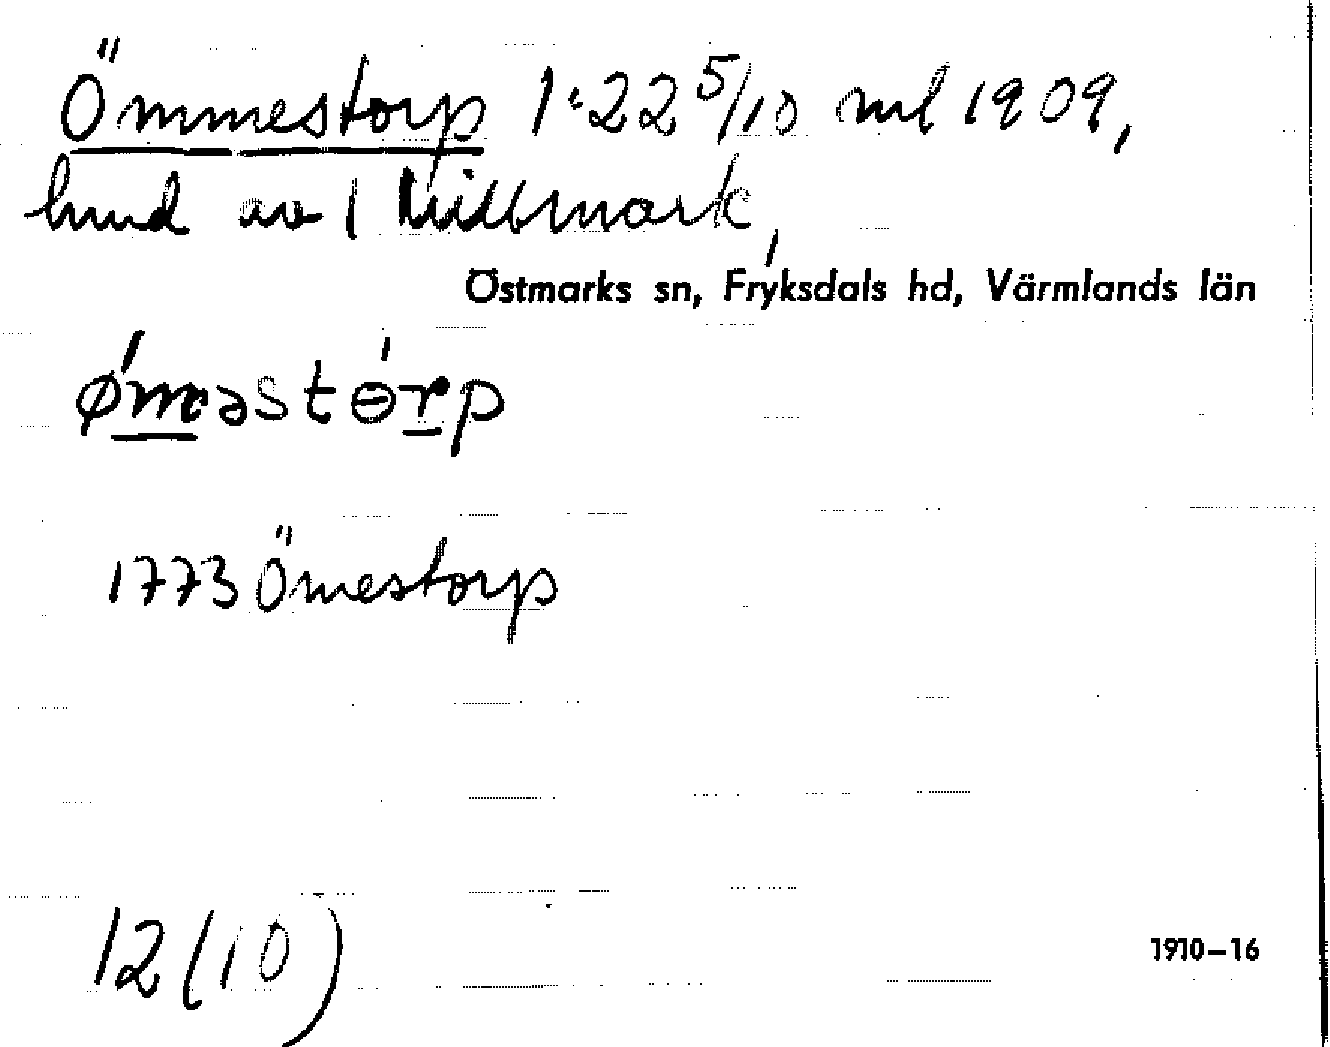 Ömmestorp 1:22 5/10 ml 1909,
hmd av 1
Östmarks sn, Fryksdals hd, Värmlands län
ǿmǝstɵ́rp
1773 Ömestorp
12 (10)
1910–16